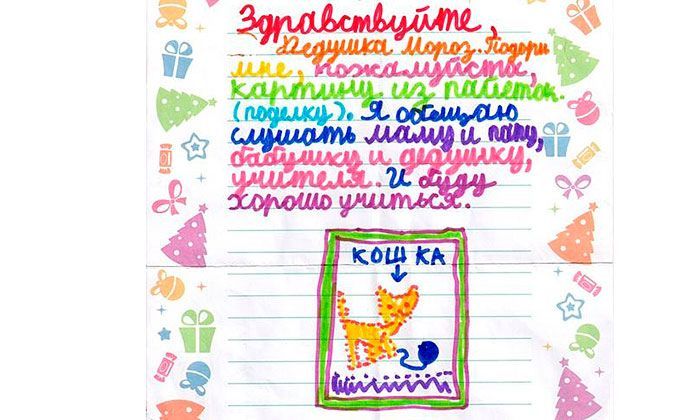 Здравствуйте,
Дедушка Мороз. Подари
мне, пожалуйста,
картину из пайеток.
(поделку). Я обещаю
слушать маму и папу,
бабушку и дедушку,
учителя. И буду
хорошо учиться.
КОШКА